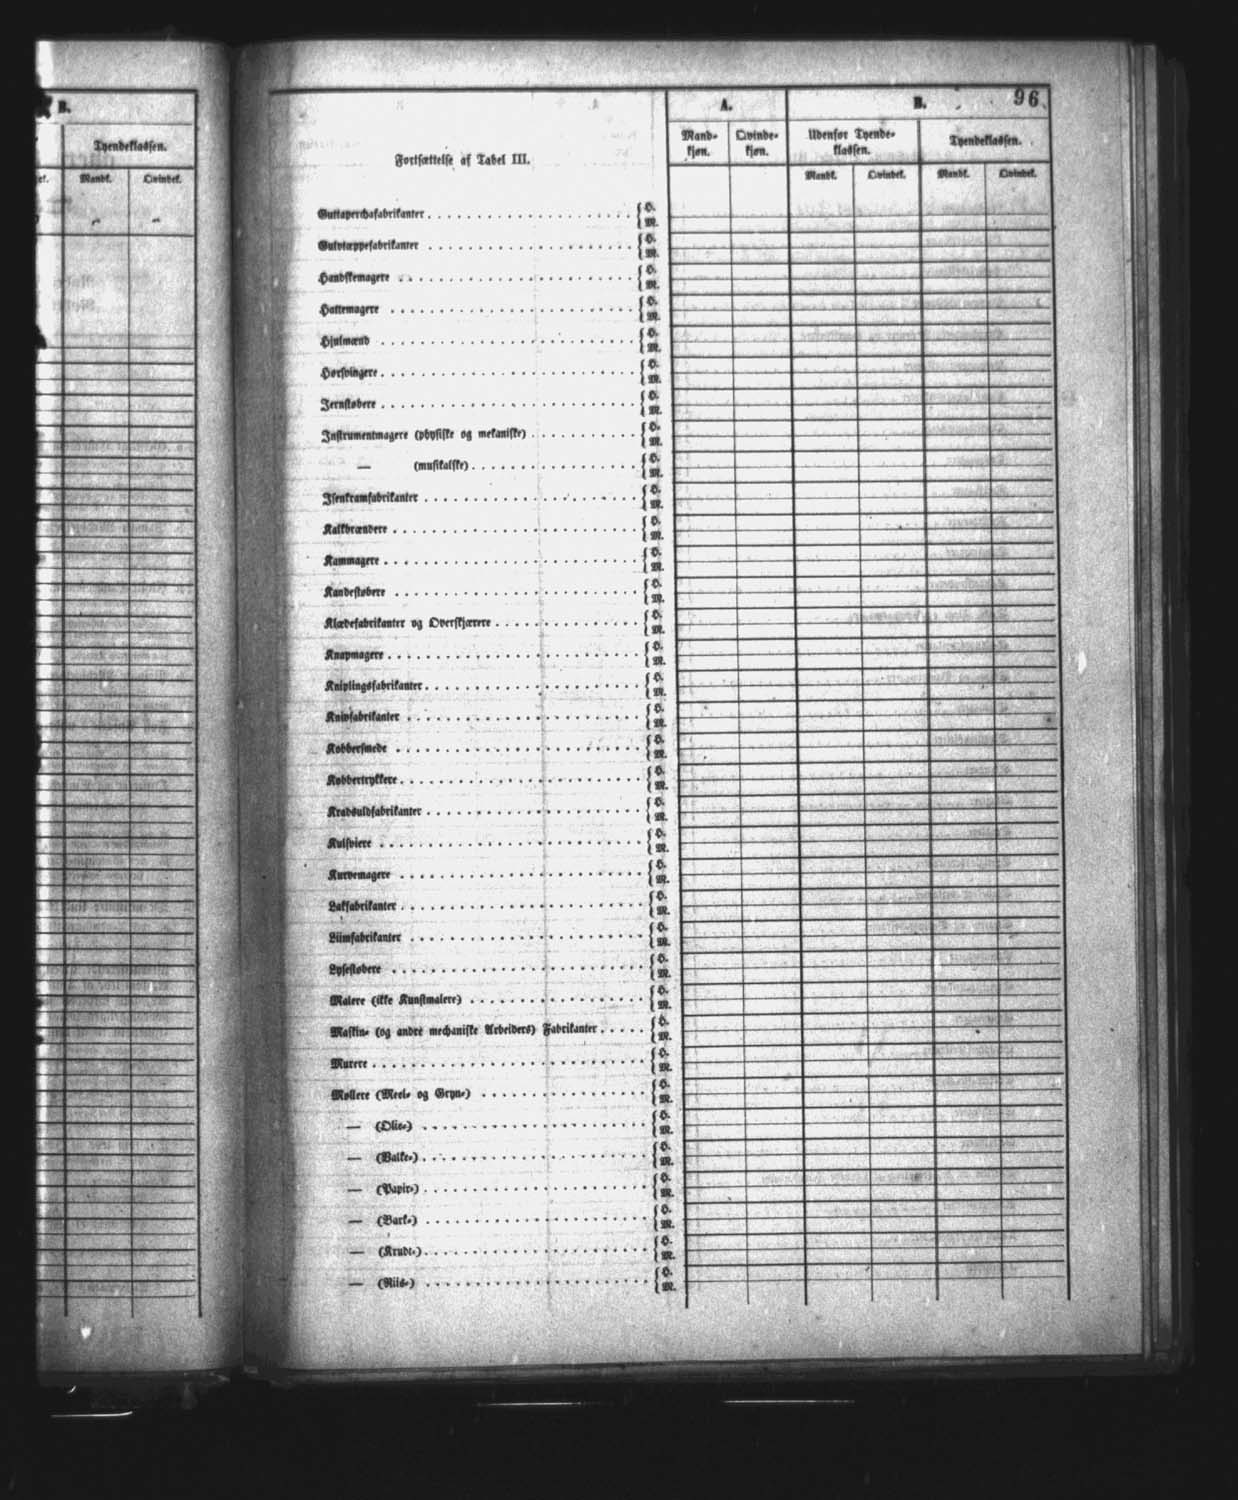 B.
Tyendeklassen.
Mandk. Qvindek.
96
A. B.
Fortsættelse af Tabel III.
Mandkjøn. Qvindekjøn. Udenfor Tyendeklassen. Tyendeklassen.
Mandk. Qvindek. Mandk. Qvindek.
Guttaperchafabrikanter { H. M.
Gulvtæppefabrikanter { H. M.
Handskemagere { H. M.
Hattemagere { H. M.
Hjulmænd { H. M.
Hørsvingere { H. M.
Jernstøbere { H. M.
Instrumentmagere (physiske og mekaniske) { H. M.
— (musikalske) { H. M.
Isenkramfabrikanter { H. M.
Kalkbrændere { H. M.
Kammagere { H. M.
Kandestøbere { H. M.
Klædefabrikanter og Overskjærere { H. M.
Knapmagere { H. M.
Kniplingsfabrikanter { H. M.
Knivfabrikanter { H. M.
Kobbersmede { H. M.
Kobbertrykkere { H. M.
Kradsuldfabrikanter { H. M.
Kulsviere { H. M.
Kurvemagere { H. M.
Lakfabrikanter { H. M.
Liimfabrikanter { H. M.
Lysestøbere { H. M.
Malere (ikke Kunstmalere) { H. M.
Maskin- (og andre mechaniske Arbeiders) Fabrikanter { H. M.
Murere { H. M.
Møllere (Meel- og Gryn-) { H. M.
— (Olie-) { H. M.
— (Valke-) { H. M.
— (Papir-) { H. M.
— (Bark-) { H. M.
— (Krudt-) { H. M.
— (Riis-) { H. M.